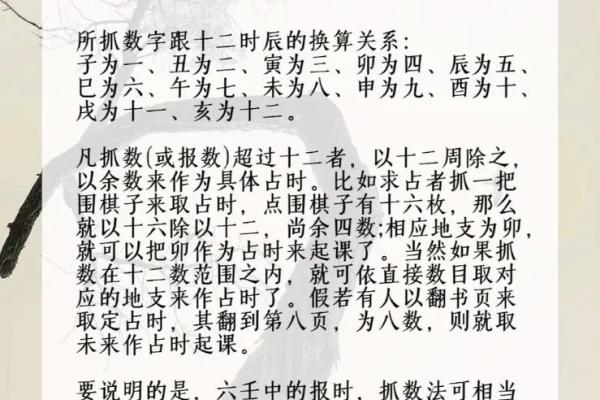 所抓数字跟十二时辰的换算关系：
子为一、丑为二、寅为三、卯为四、辰为五、
巳为六、午为七、未为八、申为九、酉为十、
戌为十一、亥为十二。
凡抓数(或报数)超过十二者，以十二周除之，
以余数来作为具体占时。比如求占者抓一把
围棋子来取占时，点围棋子有十六枚，那么
就以十六除以十二，尚余四数;相应地支为卯，
就可以把卯作为占时来起课了。当然如果抓
数在十二数范围之内，就可依直接数目取对
应的地支来作占时了。假若有人以翻书页来
取定占时，其翻到第八页，为八数，则就取
未来作占时起课。
要说明的是，六壬中的报时，抓数法可相当